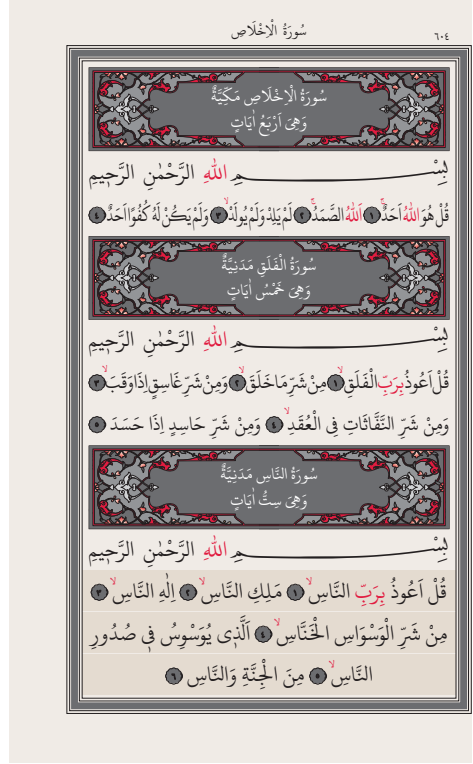 سُورَةُ الْاِخْلَاصِ
٦٠٤
سُورَةُ الْاِخْلَاصِ مَكِّيَّةٌ
وَهِىَ اَرْبَعُ اٰيَاتٍ
بِسْمِ اللّٰهِ الرَّحْمٰنِ الرَّح۪يمِ
قُلْ هُوَ اللّٰهُ اَحَدٌۚ ١ اَللّٰهُ الصَّمَدُۚ ٢ لَمْ يَلِدْ وَلَمْ يُولَدْۙ ٣ وَلَمْ يَكُنْ لَهُ كُفُوًا اَحَدٌ ٤
سُورَةُ الْفَلَقِ مَدَنِيَّةٌ
وَهِىَ خَمْسُ اٰيَاتٍ
بِسْمِ اللّٰهِ الرَّحْمٰنِ الرَّح۪يمِ
قُلْ اَعُوذُ بِرَبِّ الْفَلَقِۙ ١ مِنْ شَرِّ مَا خَلَقَۙ ٢ وَمِنْ شَرِّ غَاسِقٍ اِذَا وَقَبَۙ ٣
وَمِنْ شَرِّ النَّفَّاثَاتِ فِى الْعُقَدِۙ ٤ وَمِنْ شَرِّ حَاسِدٍ اِذَا حَسَدَ ٥
سُورَةُ النَّاسِ مَدَنِيَّةٌ
وَهِىَ سِتُّ اٰيَاتٍ
بِسْمِ اللّٰهِ الرَّحْمٰنِ الرَّح۪يمِ
قُلْ اَعُوذُ بِرَبِّ النَّاسِۙ ١ مَلِكِ النَّاسِۙ ٢ اِلٰهِ النَّاسِۙ ٣
مِنْ شَرِّ الْوَسْوَاسِ الْخَنَّاسِۙ ٤ اَلَّذ۪ى يُوَسْوِسُ ف۪ى صُدُورِ
النَّاسِۙ ٥ مِنَ الْجِنَّةِ وَالنَّاسِ ٦